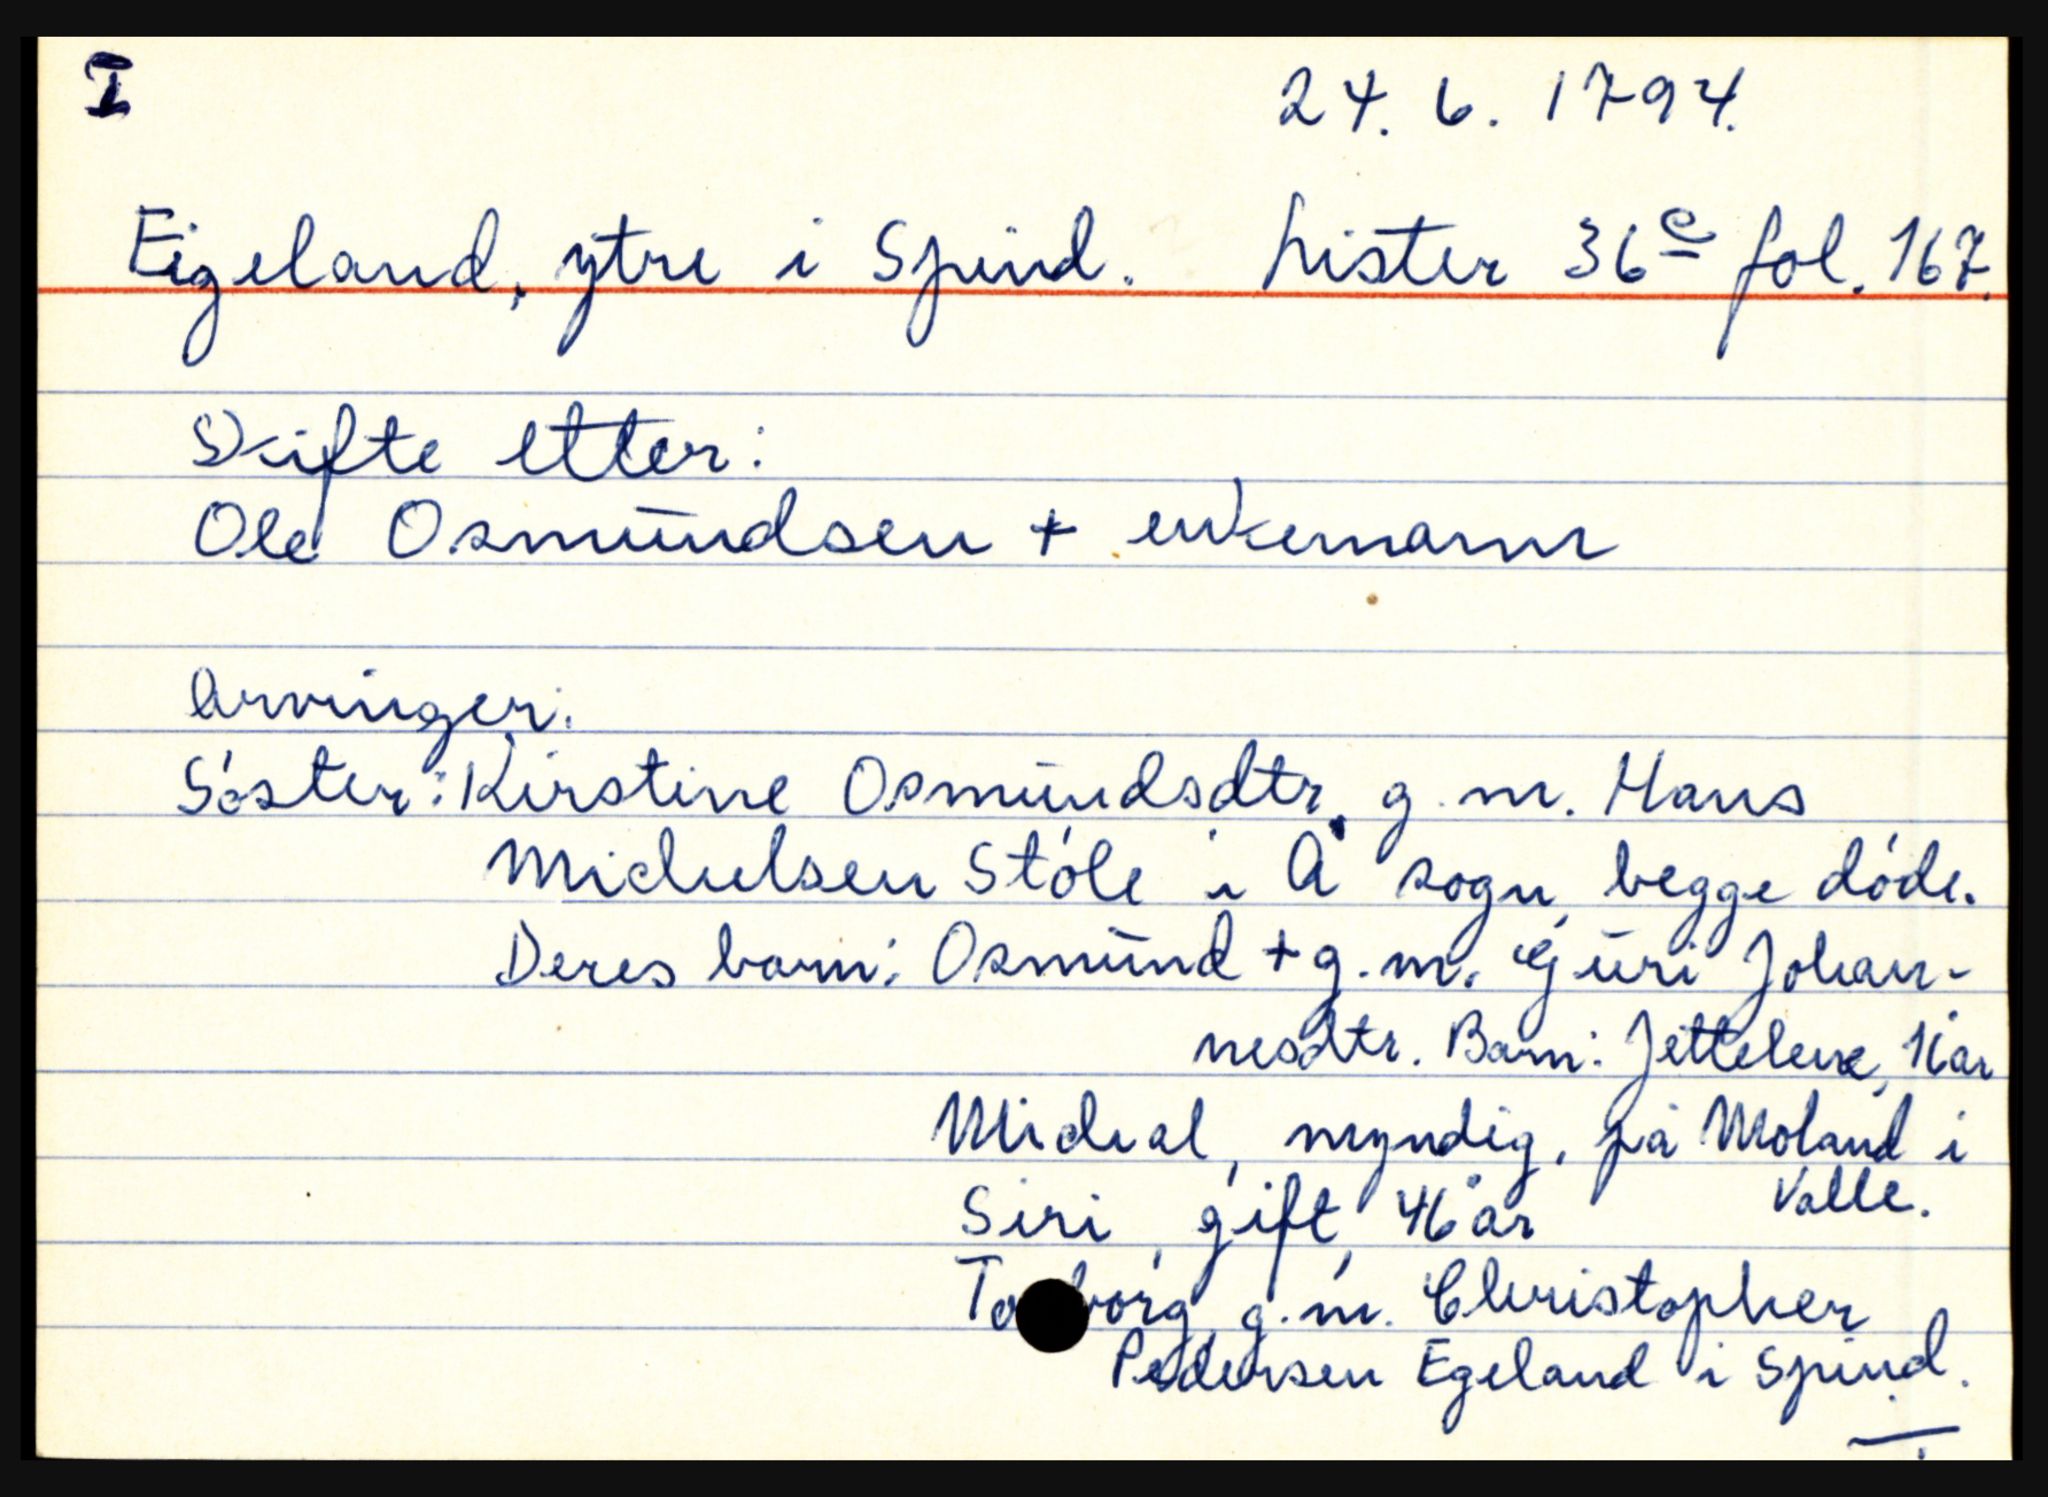 I
24. 6. 1794.
Eigeland, ytre i Spind. Lister 36e fol. 167.
Skifte etter:
Ole Osmundsen + enkemann
Arvinger:
Søster: Kirstine Osmundsdtr, g.m. Hans
Michelsen Støle i Å sogn, begge døde.
Deres barn: Osmund + g.m. Guri Johan-
nesdtr. Barn: Jettelene, 16 år
Micheal, myndig, på Moland i
Valle.
Siri, gift, 46 år
g.m. Christopher
Pedersen Egeland i Spind.